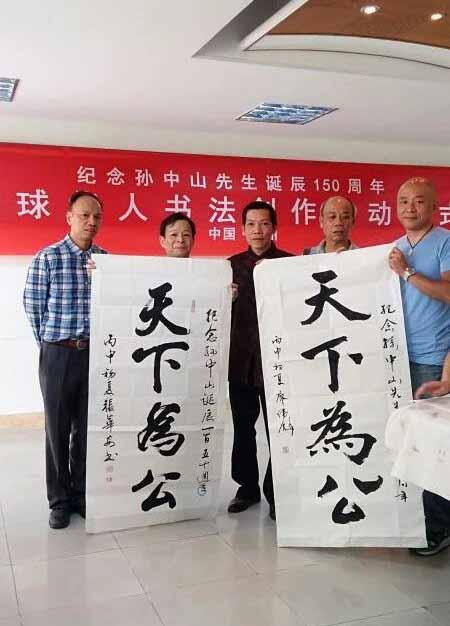 纪念孙中山先生诞辰150周年
球 人书法 作 动 式
中国
天下為公
纪念孙中山诞辰一百五十周年
丙申初夏張華安书
天下為公
纪念孙中山先生 周年
丙申初夏